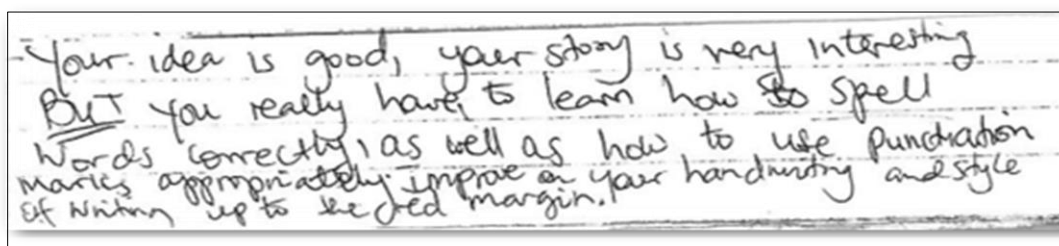 Your idea is good, your story is very interesting
BUT you really have to learn how to spell
words correctly, as well as how to use punctuation
marks appropriately. improve on your handwriting and style
of writing up to the red margin.